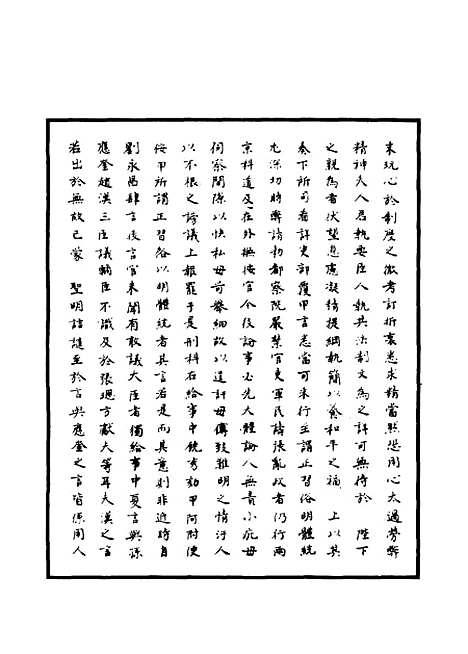 來玩心於制度之微考訂折衷悉求精當然恐用心太過勞弊
精神夫人君執要臣人執共法制文為之詳可無待於　陛下
之親為者伏望息慮凝精提綱執簡以養和平之福　上以其
奏下所司看詳吏部覆甲言悉當可采行至謂正習俗明體統
尤深切時弊請勅都察院嚴禁官吏軍民譸張亂政者仍行兩
京科道及在外撫按官今後論事必先大體論人無責小疵毋
伺察閒隙以快私毋苛舉細故以遠訐毋傳疑難明之情汙人
以不根之謗議上報罷于是刑科右給事中饒秀劾甲阿附便
佞甲所謂正習俗以明體統者其言若是而其意則非近時自
劉永昌肆言後言官未聞有敢議大臣者獨給事中夏言與孫
應奎趙漢三臣議輔臣不識及於張璁方獻夫等耳夫漢之言
若出於無故已蒙　聖明詰譴至於言與應奎之言皆係用人